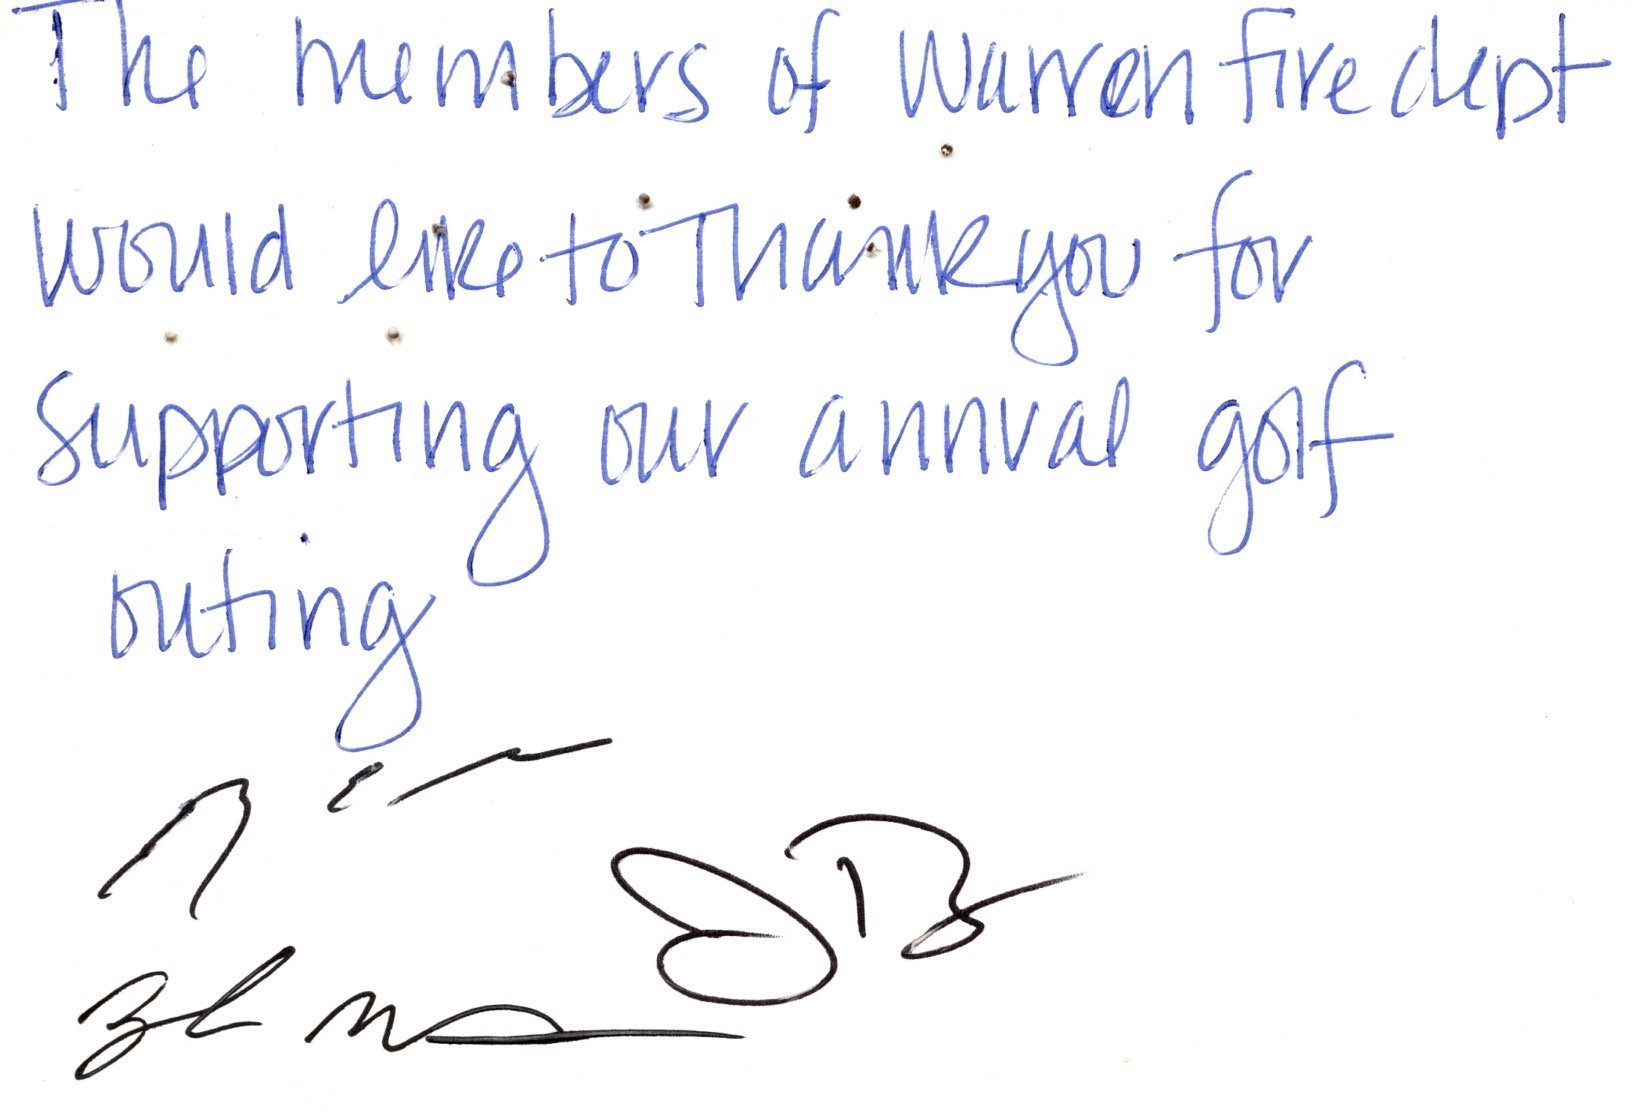 The members of Warren fire dept
would like to Thank you for
supporting our annual golf
outing